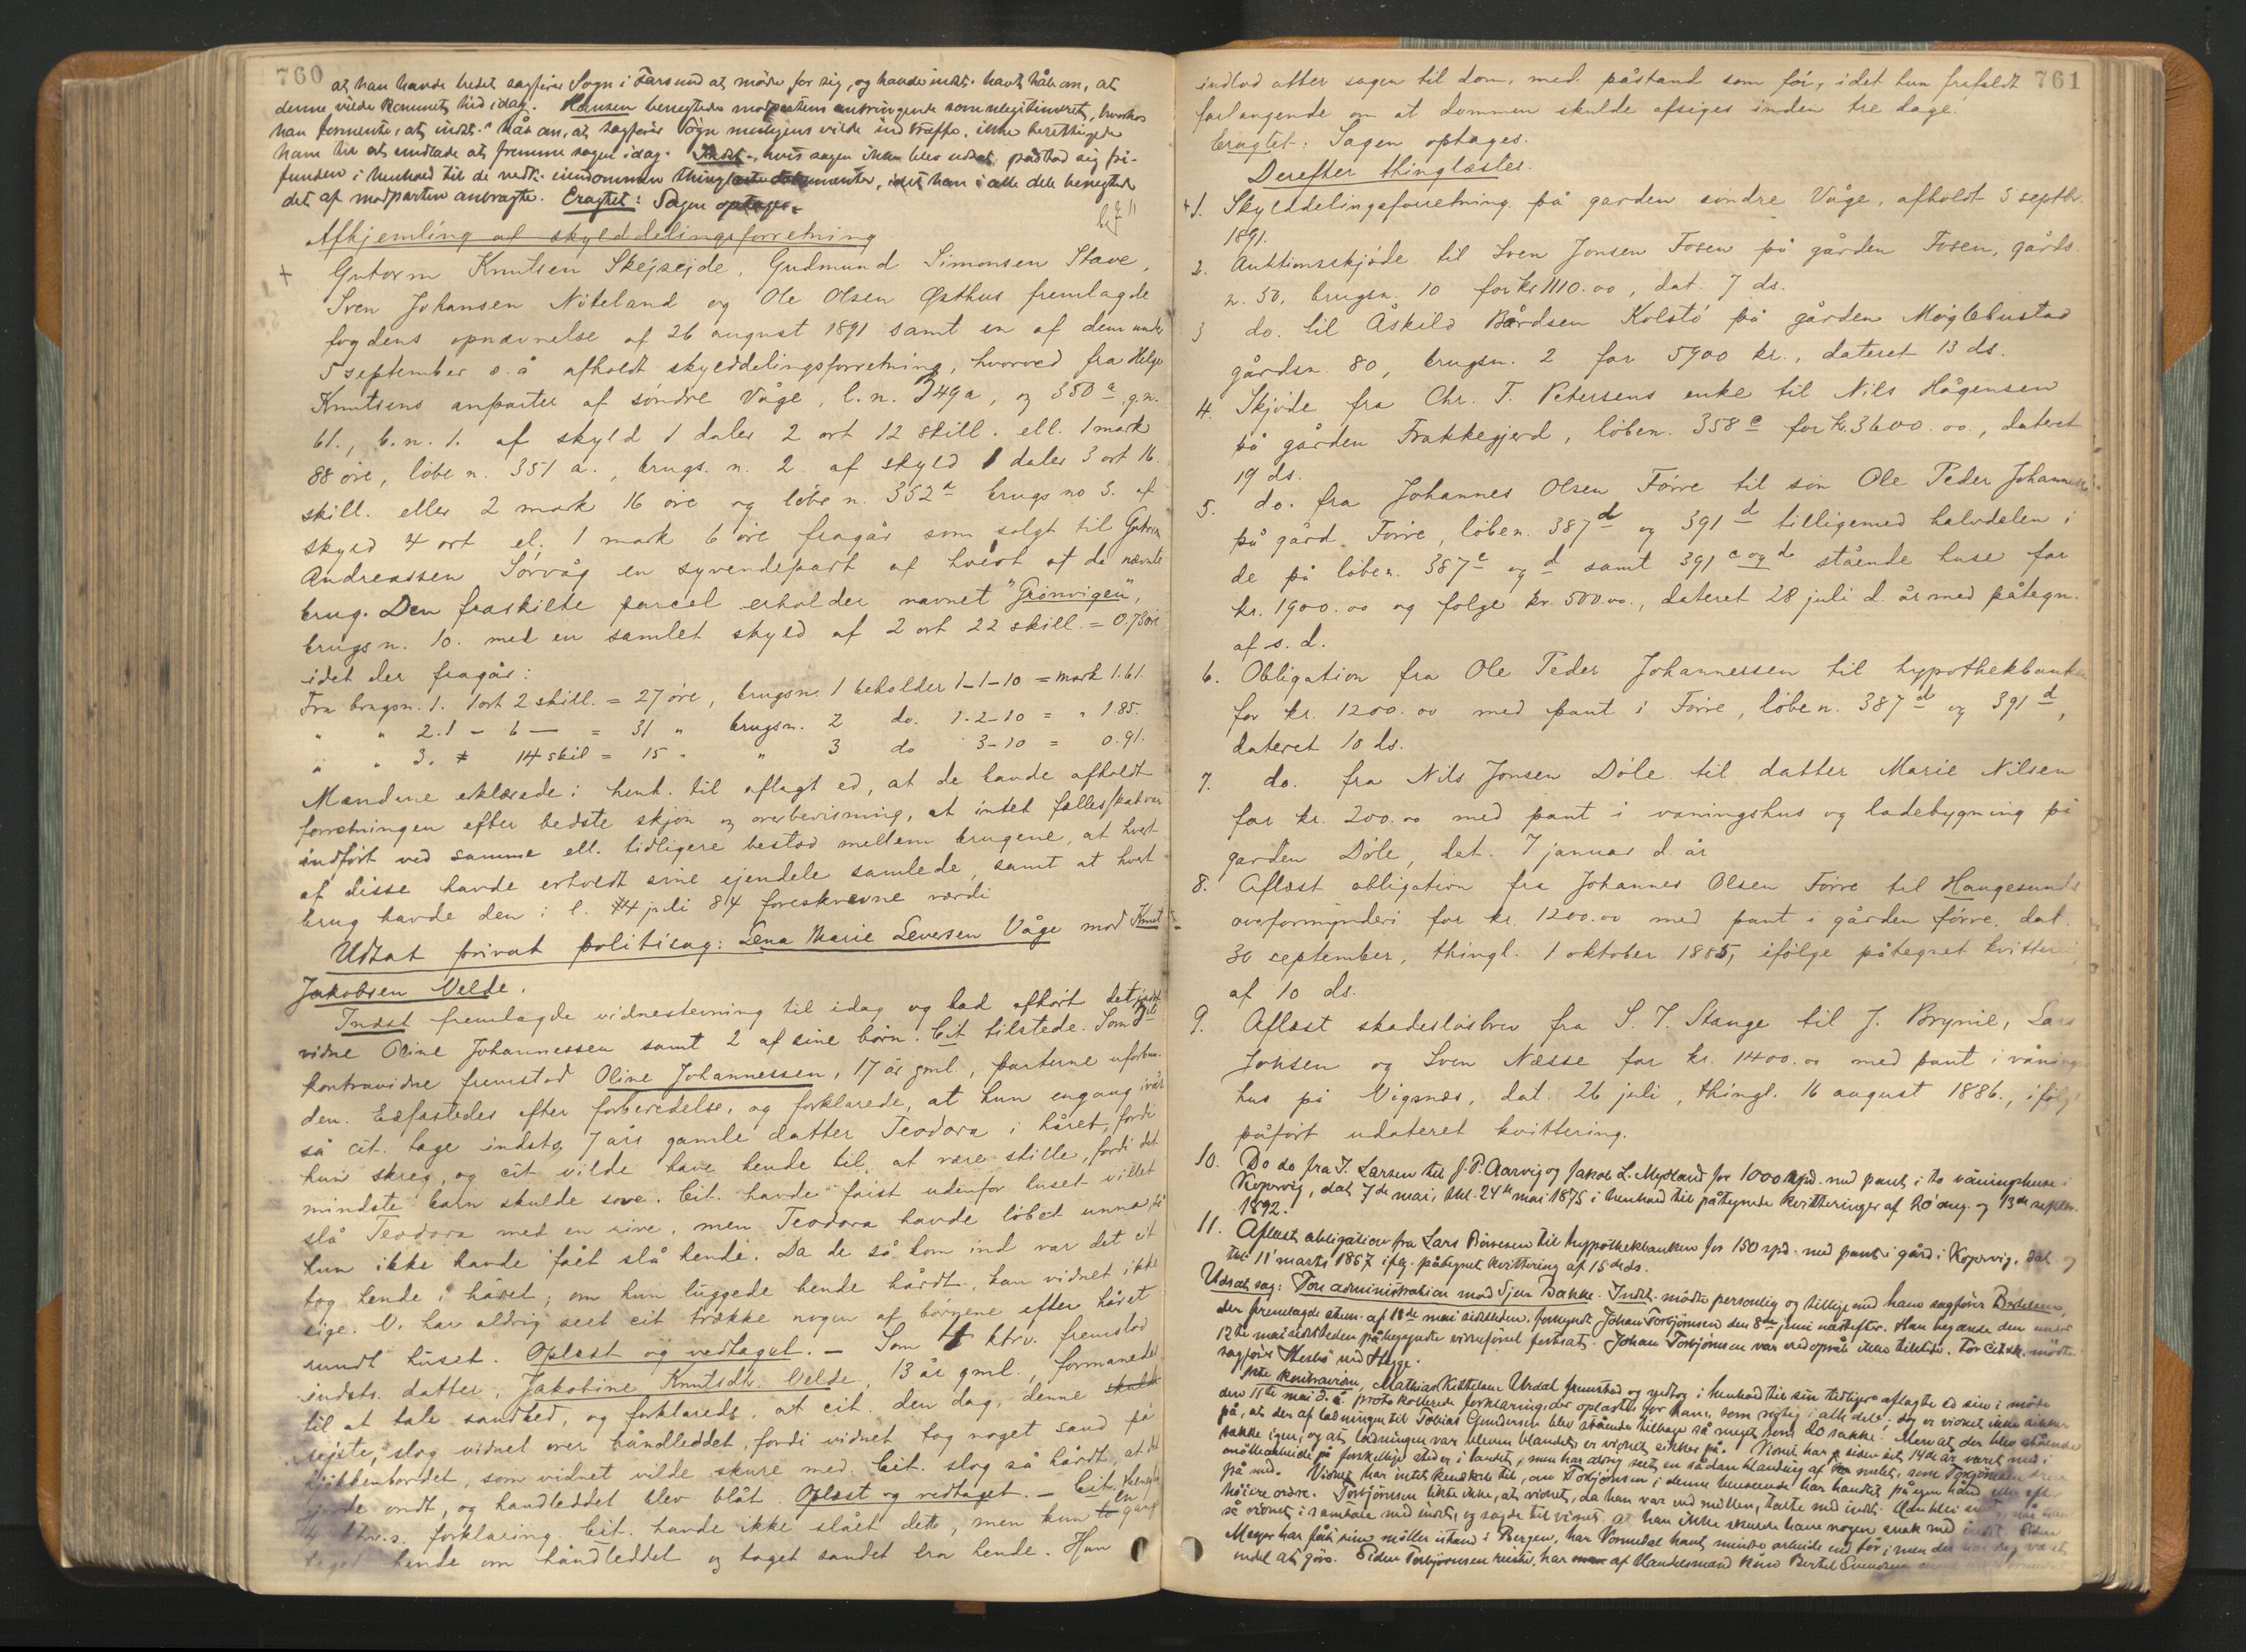 760
at han havde bedet sagfører Sogn i Farsund at møde for sig, og havde indst. havt håb om, at
denne vilde kommet hid idag. Hansen benegtede modpartens anbringende som ulegitimeret, hvorhos
han formente, at indst.s håb om, at sagfører Sogn muligens vilde indtræffe, ikke berettigede
ham til at undlade at fremme sagen idag. Indst., hvis sagen ikke blev udsat, påstod sig fri-
funden i henhold til de vedk. eiendommen thinglæste dokumenter, idet han i alle dele benegtede
det af modparten anbragte. Eragtet: Sagen optages.
Afhjemling af skylddelingsforretning
+ Gutorm Knutsen Skejsejde, Gudmund Simonsen Stave,
Sven Johansen Nöteland og Ole Olsen Østhus fremlagde
fogdens opnævnelse af 26 august 1891 samt en af dem under
5 september s. å afholdt skylddelingsforretning, hvorved fra Helge
Knutsens anparter af söndre Våge, l.n. 349a, og 350 a g.n.
61., b.n. 1. af skyld 1 daler 2 ort 12 skill. ell. 1 mark
88 öre, löbe n. 351 a., brugs. n. 2 af skyld 1 daler 3 ort 16
skill. eller 2 mark 16 öre og löbe n. 352 a brugs no 3. af
skyld 4 ort el. 1 mark 6 öre fragår som solgt til Gutorm
Andreassen Sörvåg en syvendepart af hvert af de nævnte
brug. Den fraskilte parcel erholder navnet "Grönvigen",
brugs n. 10. med en samlet skyld af 2 ort 22 skill. = 0.73 öre
idet der fragår:
Fra brugsn. 1. 1 ort 2 skill. = 27 öre, brugsn. 1 beholder 1-1-10 = mark 1.61.
" " 2. 1 - 6 — = 31 " brugsn. 2 do. 1-2-10 = " 1.85.
" " 3. 14 skil = 15 " " 3 do 3-10 = 0.91.
Mændene erklærede i henh. til aflagt ed, at de havde afholdt
forretningen efter bedste skjön og overbevisning, at intet fællesskab var
indfört ved samme ell. tidligere bestod mellem brugene, at hvert
af disse havde erholdt sine ejendele samlede, samt at hvert
brug havde den i l. 4 juli 84 foreskrevne værdi
Udsat privat politisag: Lena Marie Seversen Våge mod Knut
Jakobsen Velde.
Indst fremlagde vidnestevning til idag og lod afhört det indst.
vidne Oline Johannessen samt 2 af sine börn. Cit tilstede. Som 3die
kontravidne fremstod Oline Johannessen, 17 år gml., parterne uforbun-
den. Edfæstedes efter forberedelse, og forklarede, at hun engang ivår
så cit. tage indsts 7 års gamle datter Teodora i håret, fordi
hun skreg, og cit vilde have hende til at være stille, fordi det
mindste barn skulde sove. Cit. havde föist udenfor huset villet
slå Teodora med en rive, men Teodora havde löbet unna, så
hun ikke havde fået slå hende. Da de så kom ind var det cit
tog hende i håret; om hun luggede hende hårdt, kan vidnet ikke
sige. V. har aldrig seet cit trække nogen af börnene efter håret
rundt huset. Oplæst og vedtaget. — Som 4 ktrv. fremstod
indsts. datter, Jakobine Knutsdtr. Velde, 13 år gml., formanedes
til at tale sandhed, og forklarede, at cit. den dag, denne skulde
rejste, slog vidnet over håndleddet, fordi vidnet tog noget sand på
kjökkenbordet, som vidnet vilde skure med. Cit. slog så hårdt, at det
gjorde ondt, og handleddet blev blåt. Oplæst og vedtaget. — Cit.
4 ktrv.s. forklaring. Cit. havde ikke slået dette, men kun en gang
taget hende om håndleddet og taget sandet fra hende. Hun
761
indlod atter sagen til dom, med påstand som för, idet hun frafaldt
forlangende om at dommen skulde afsiges inden tre dage.
Eragtet: Sagen optages.
Derefter thinglæstes.
+1. Skylddelingsforretning på garden söndre Våge, afholdt 5 septbr.
1891.
2. Auktionsskjöde til Sven Jonsen Fosen på gården Fosen, gårds.
n. 50, brugsn. 10 for kr 1110.00, dat. 7 ds.
3 do. til Åskild Bårdsen Kolstö på gården Möglebustad
gårdsn. 80, brugsn. 2 for 5900 kr., dateret 13 ds.
4. Skjöde fra Chr. T. Petersens enke til Nils Hågensen
på gården Frakkegjerd, löben. 358 e for kr. 3600.00., dateret
19 ds.
5. do. fra Johannes Olsen Förre til sön Ole Peder Johannessen
på gård Förre, löben. 387 d og 391 d tilligemed halvdelen i
de på löben. 387 c og d samt 391 c og d stående huse for
kr. 1900.00 og følge kr. 500.00., dateret 28 juli d. år med påtegn.
af s. d.
6. Obligation fra Ole Peder Johannessen til hypothekbanken
for kr. 1200.00 med pant i Förre, löbe n. 387 d og 391 d,
dateret 10 ds.
7. do. fra Nils Jonsen Döle til datter Marie Nilsen
for kr. 200.00 med pant i vaningshus og ladebygning på
garden Döle, dat. 7 januar d. år
8. Aflæst obligation fra Johannes Olsen Förre til Haugesunds
overformynderi for kr. 1200.00 med pant i gården förre, dat.
30 september, thingl. 1 oktober 1885, ifölge påtegnet kvittering
af 10 ds.
9. Aflæst skadeslösbrev fra S. T. Stange til J. Brynie, Lars
Johsen og Sven Næsse for kr. 1400.00 med pant i vånings
hus på Vigsnæs, dat. 26 juli, thingl. 16 august 1886., ifölge
påfört udateret kvittering.
10. Do do fra T. Larsen til J. P. Aarvig og Jakob L. Mydland for 1000 spd. med pant i to våningshuse i
Kopervig, dat 7de mai, thl. 24de mai 1875 i henhold til påtegnede kvitteringer af 20 aug. og 13de septbr.
1892.
11. Aflæst obligation fra Lars Börresen til hypothekbanken for 150 spd. med pant i gård i Kopervig, dat og
thl 11 marts 1857 iflg. påtegnet kvittering af 15de ds.
Udsat sag: Tore administration mod Sjur Bakke. Indst. mödte personlig og tillige med ham sagförer Bertelsen,
der fremlagde stevn. af 18de mai sidstleden, forkyndt Johan Torbjörnsen den 8de juni næstefter. Han begærde den under
12te mai sidstleden påbegyndte vidneförsel fortsat. Johan Torbjörnsen var ved opråb ikke tilstede. For citsk. mödte
sagförer Hesbö ved Hegge.
1ste kontravidne, Mathias Kittelsen Urdal fremstod og vedtog i henhold til sin tidligere aflagte ed sin i möde
den 11te mai d. å protokollerede forklaring, der oplæstes for ham, som rigtig i alle dele. Og er vidnet ikke sikker
på, at der af ladningen til Tobias Gundersen blev stående tilbage så meget som 20 sække. Men at der blev stående
sække igjen, og at ladningen var bleven blandet, er vidnet sikker på. Vidnet har siden sit 14de år været med i
möllearbeide på forskellige steder i landet, men har aldrig seet en sådan blanding af melet, som Torbjörnsen drev
på med. Vidnet har intet kendskab til, om Torbjörnsen i denne henseende har handlet på egen hånd eller eft.
höiere ordre. Torbjörnsen likte ikke, at vidnet, da han var ved möllen, talte med indst.
så vidnet i samtale med indst, og sagde til vidnet, at han ikke skulde have nogen snak med indst. Siden
Meyer har fåt sin mölle istand i Bergen, har Vormedal havt mindre arbeide end för, men der har dog været
endel at göre. Siden Torbjörnsen reiste, har af Handelsmand